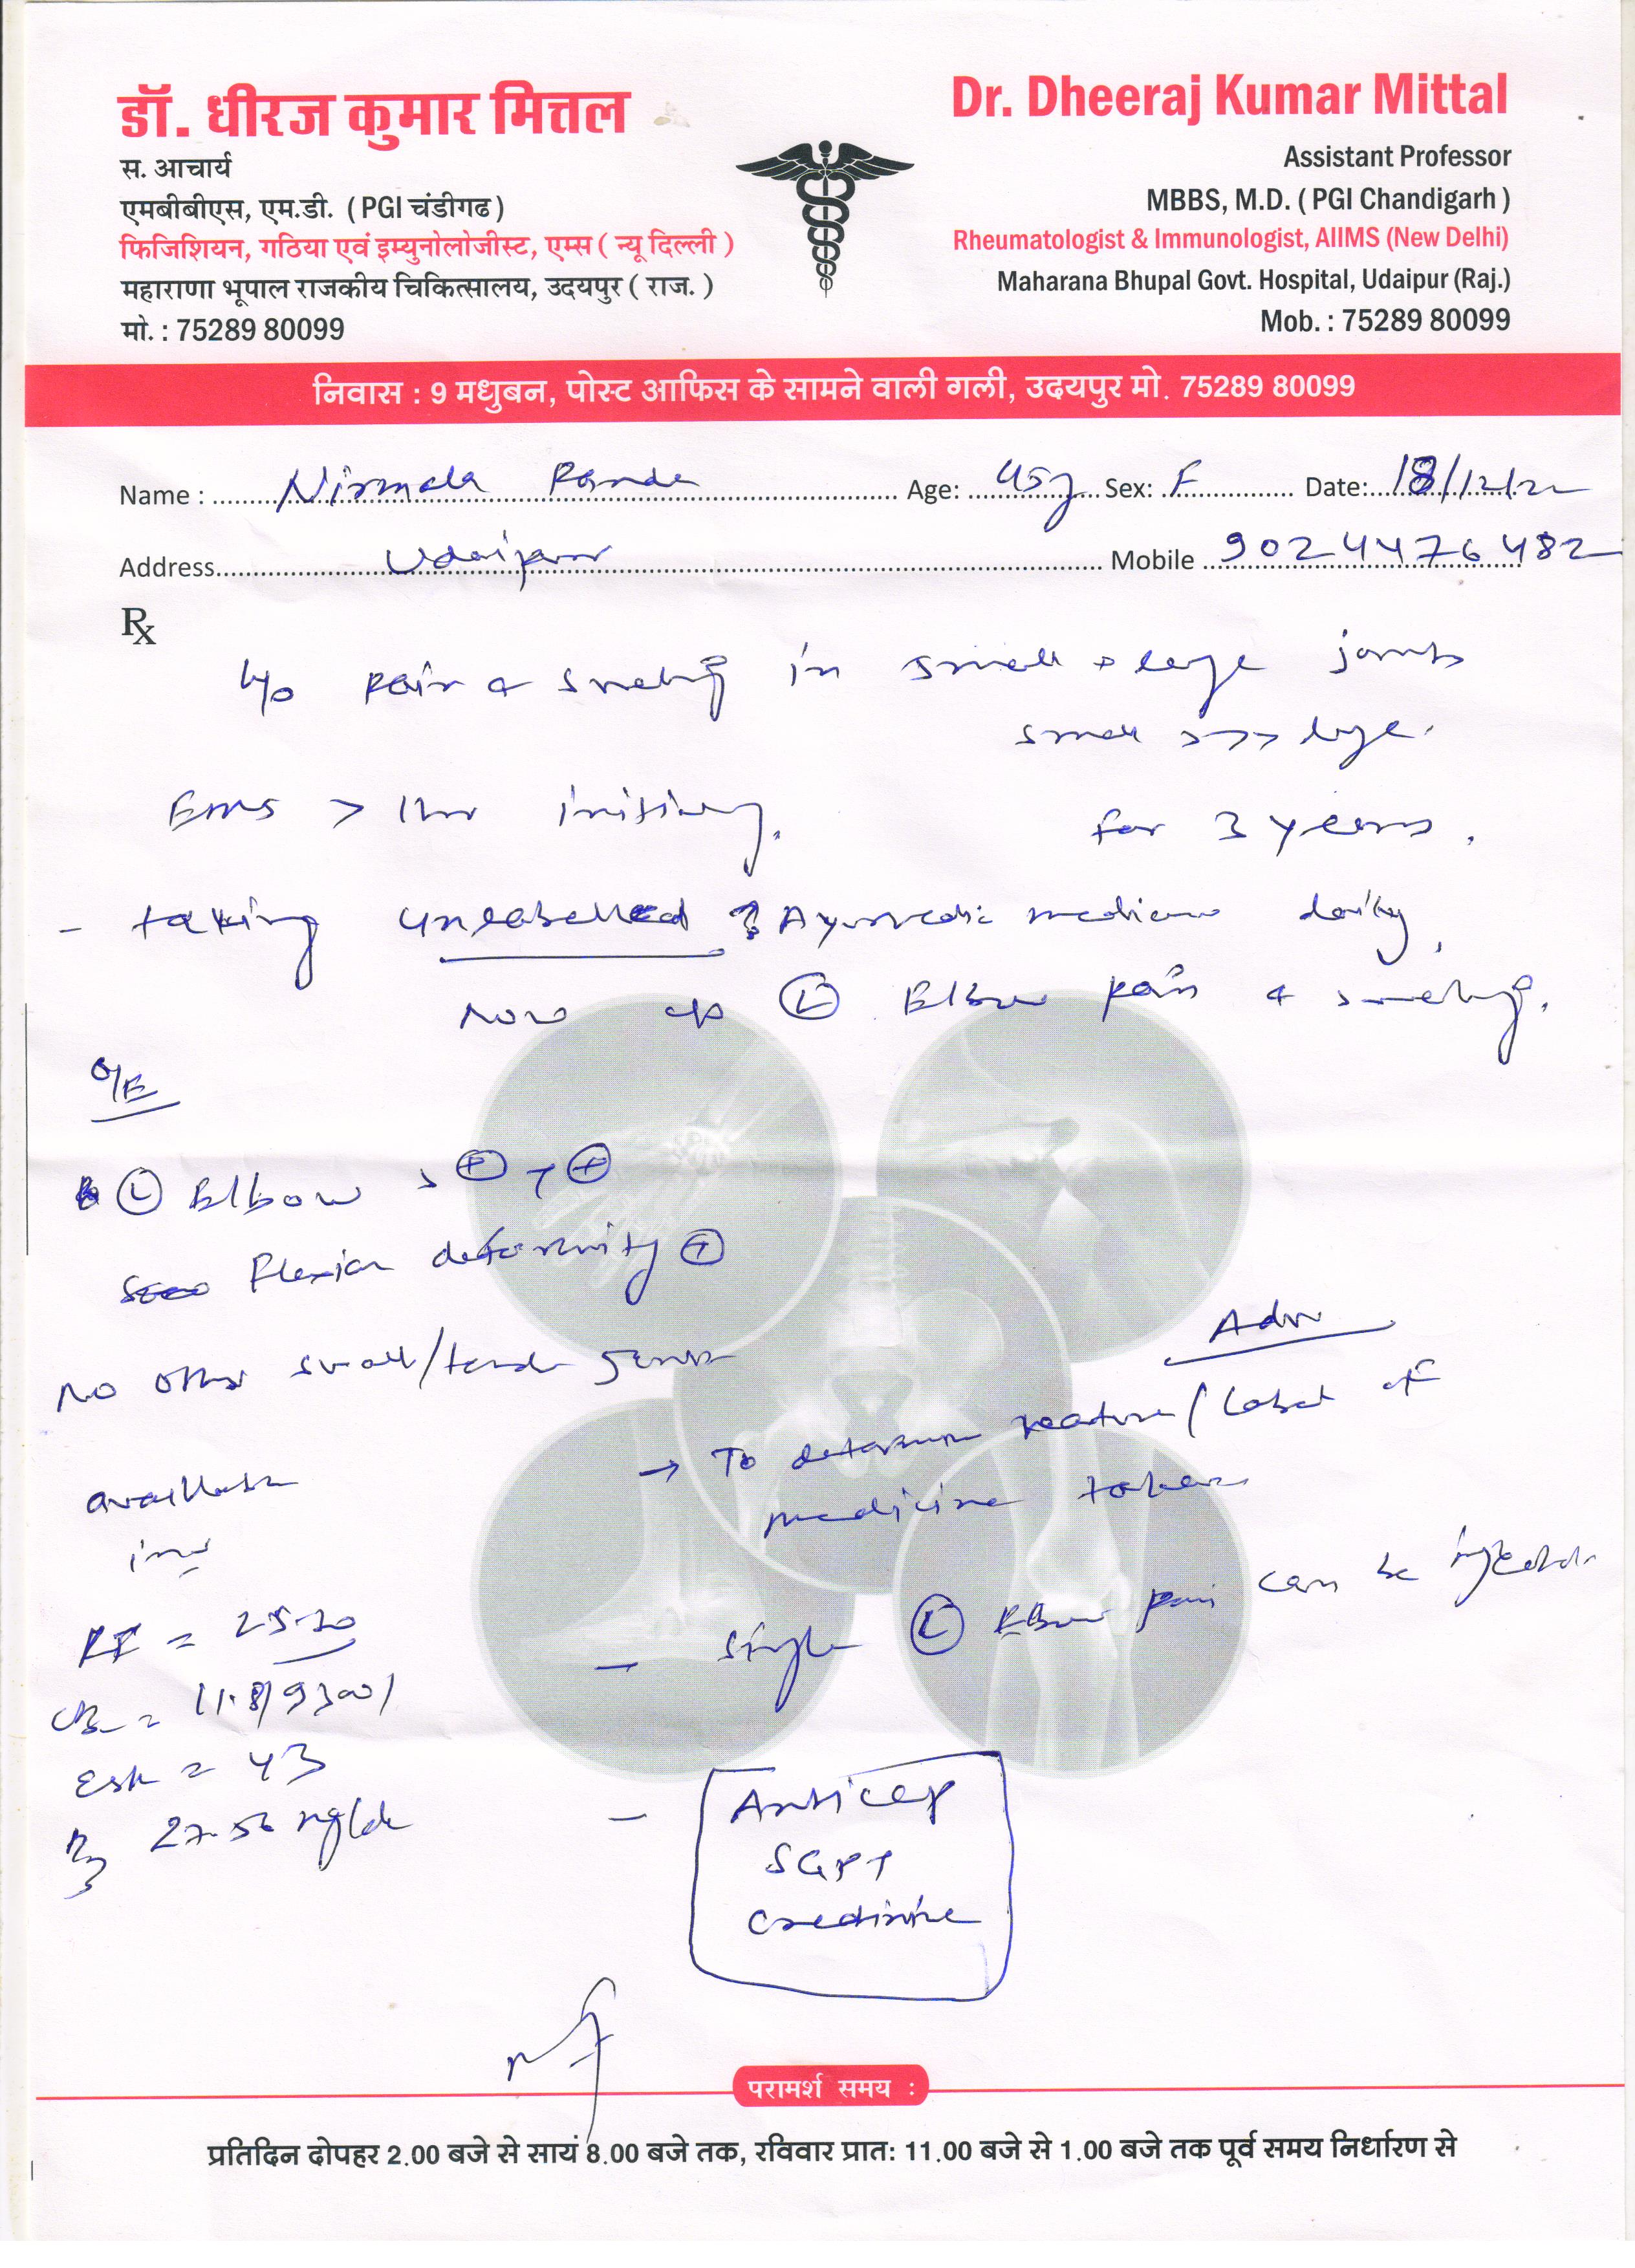 डॉ. धीरज कुमार मित्तल
स. आचार्य
एमबीबीएस, एम.डी. ( PGI चंडीगढ )
फिजिशियन, गठिया एवं इम्युनोलोजीस्ट, एम्स ( न्यू दिल्ली )
महाराणा भूपाल राजकीय चिकित्सालय, उदयपुर ( राज. )
मो. : 75289 80099
Dr. Dheeraj Kumar Mittal
Assistant Professor
MBBS, M.D. ( PGI Chandigarh )
Rheumatologist & Immunologist, AIIMS (New Delhi)
Maharana Bhupal Govt. Hospital, Udaipur (Raj.)
Mob. : 75289 80099
निवास : 9 मधुबन, पोस्ट आफिस के सामने वाली गली, उदयपुर मो. 75289 80099
Name : Nirmala Age: 45y Sex: F Date: 18/12/22
Address Udaipur Mobile 9024476482
Rx
h/o pain & swelling in small & large joints
small >>> large.
EMS > 1hr initially. for 3 years.
- taking unlabelled ? Ayurvedic medicine daily.
Now c/o (L) Elbow pain & swelling.
O/E
(L) Elbow S (+) T (+)
Flexion deformity (+)
No other swoll/tender joints
Adv
→ To determine nature/label of
medicine taken
available
inv
- Single (L) Elbow pain can be injected.
RF =
ESR = 43
- Anti CCP
SGPT
Creatinine
परामर्श समय :
प्रतिदिन दोपहर 2.00 बजे से सायं 8.00 बजे तक, रविवार प्रात: 11.00 बजे से 1.00 बजे तक पूर्व समय निर्धारण से